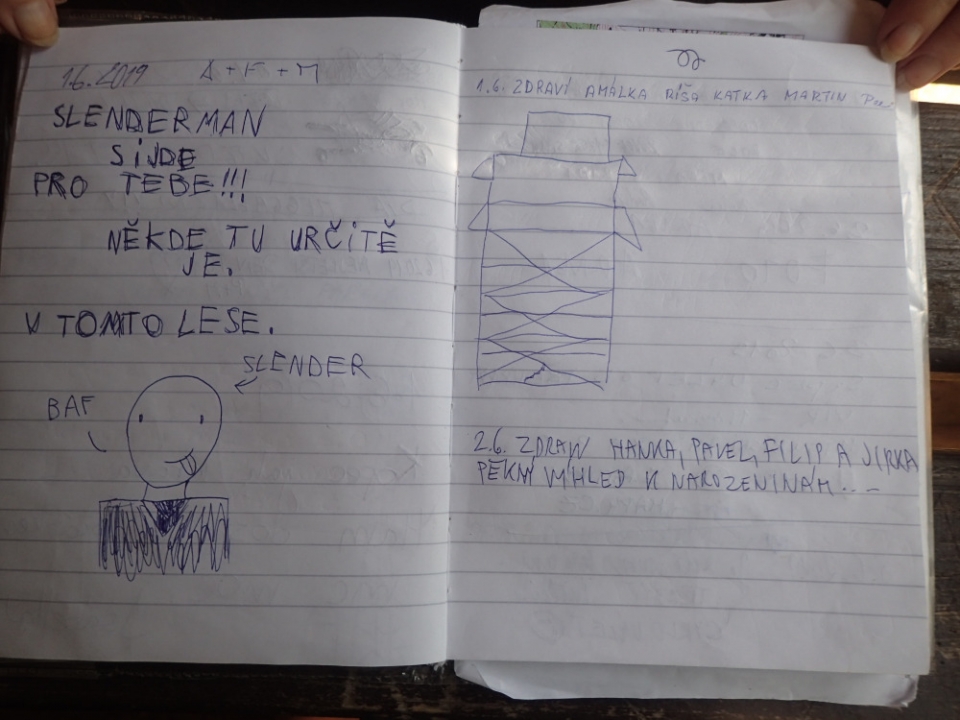 1.6.2019 A + F + M
SLENDERMAN
SiJDE
PRO TEBE!!!
NĚKDE TU URČiTĚ
JE.
V TOMTO LESE.
SLENDER
BAF
1.6. ZDRAVÍ AMÁLKA RÍŠA KATKA MARTIN
2.6. ZDRAVÍ HANKA, PAVEL, FILIP A JIRKA
PĚKNÝ VÝHLED K NAROZENINÁM...